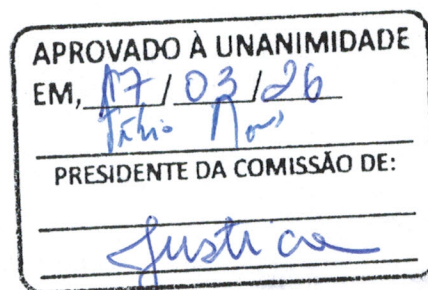 APROVADO À UNANIMIDADE
EM, 17 / 03 / 26
PRESIDENTE DA COMISSÃO DE:
Justica